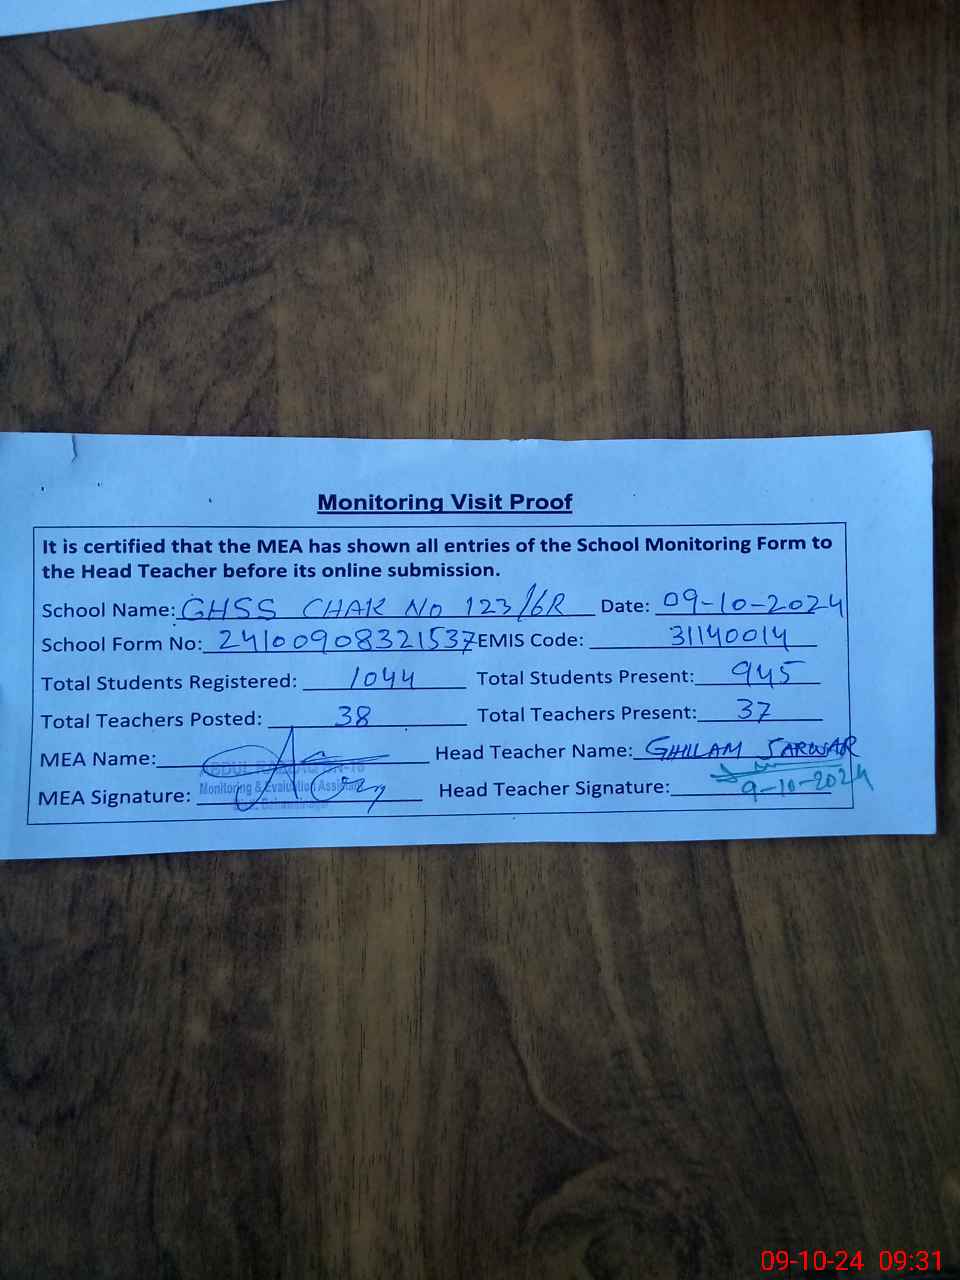 Monitoring Visit Proof
It is certified that the MEA has shown all entries of the School Monitoring Form to
the Head Teacher before its online submission.
School Name: GHSS CHAK No 123/6R Date: 09-10-2024
School Form No: 24100908321537 EMIS Code: 31140014
Total Students Registered: 1044 Total Students Present: 945
Total Teachers Posted: 38 Total Teachers Present: 37
MEA Name: Head Teacher Name: GHULAM SARWAR
Monitoring & Evaluation Assistant
MEA Signature: Head Teacher Signature: 9-10-2024
09-10-24 09:31